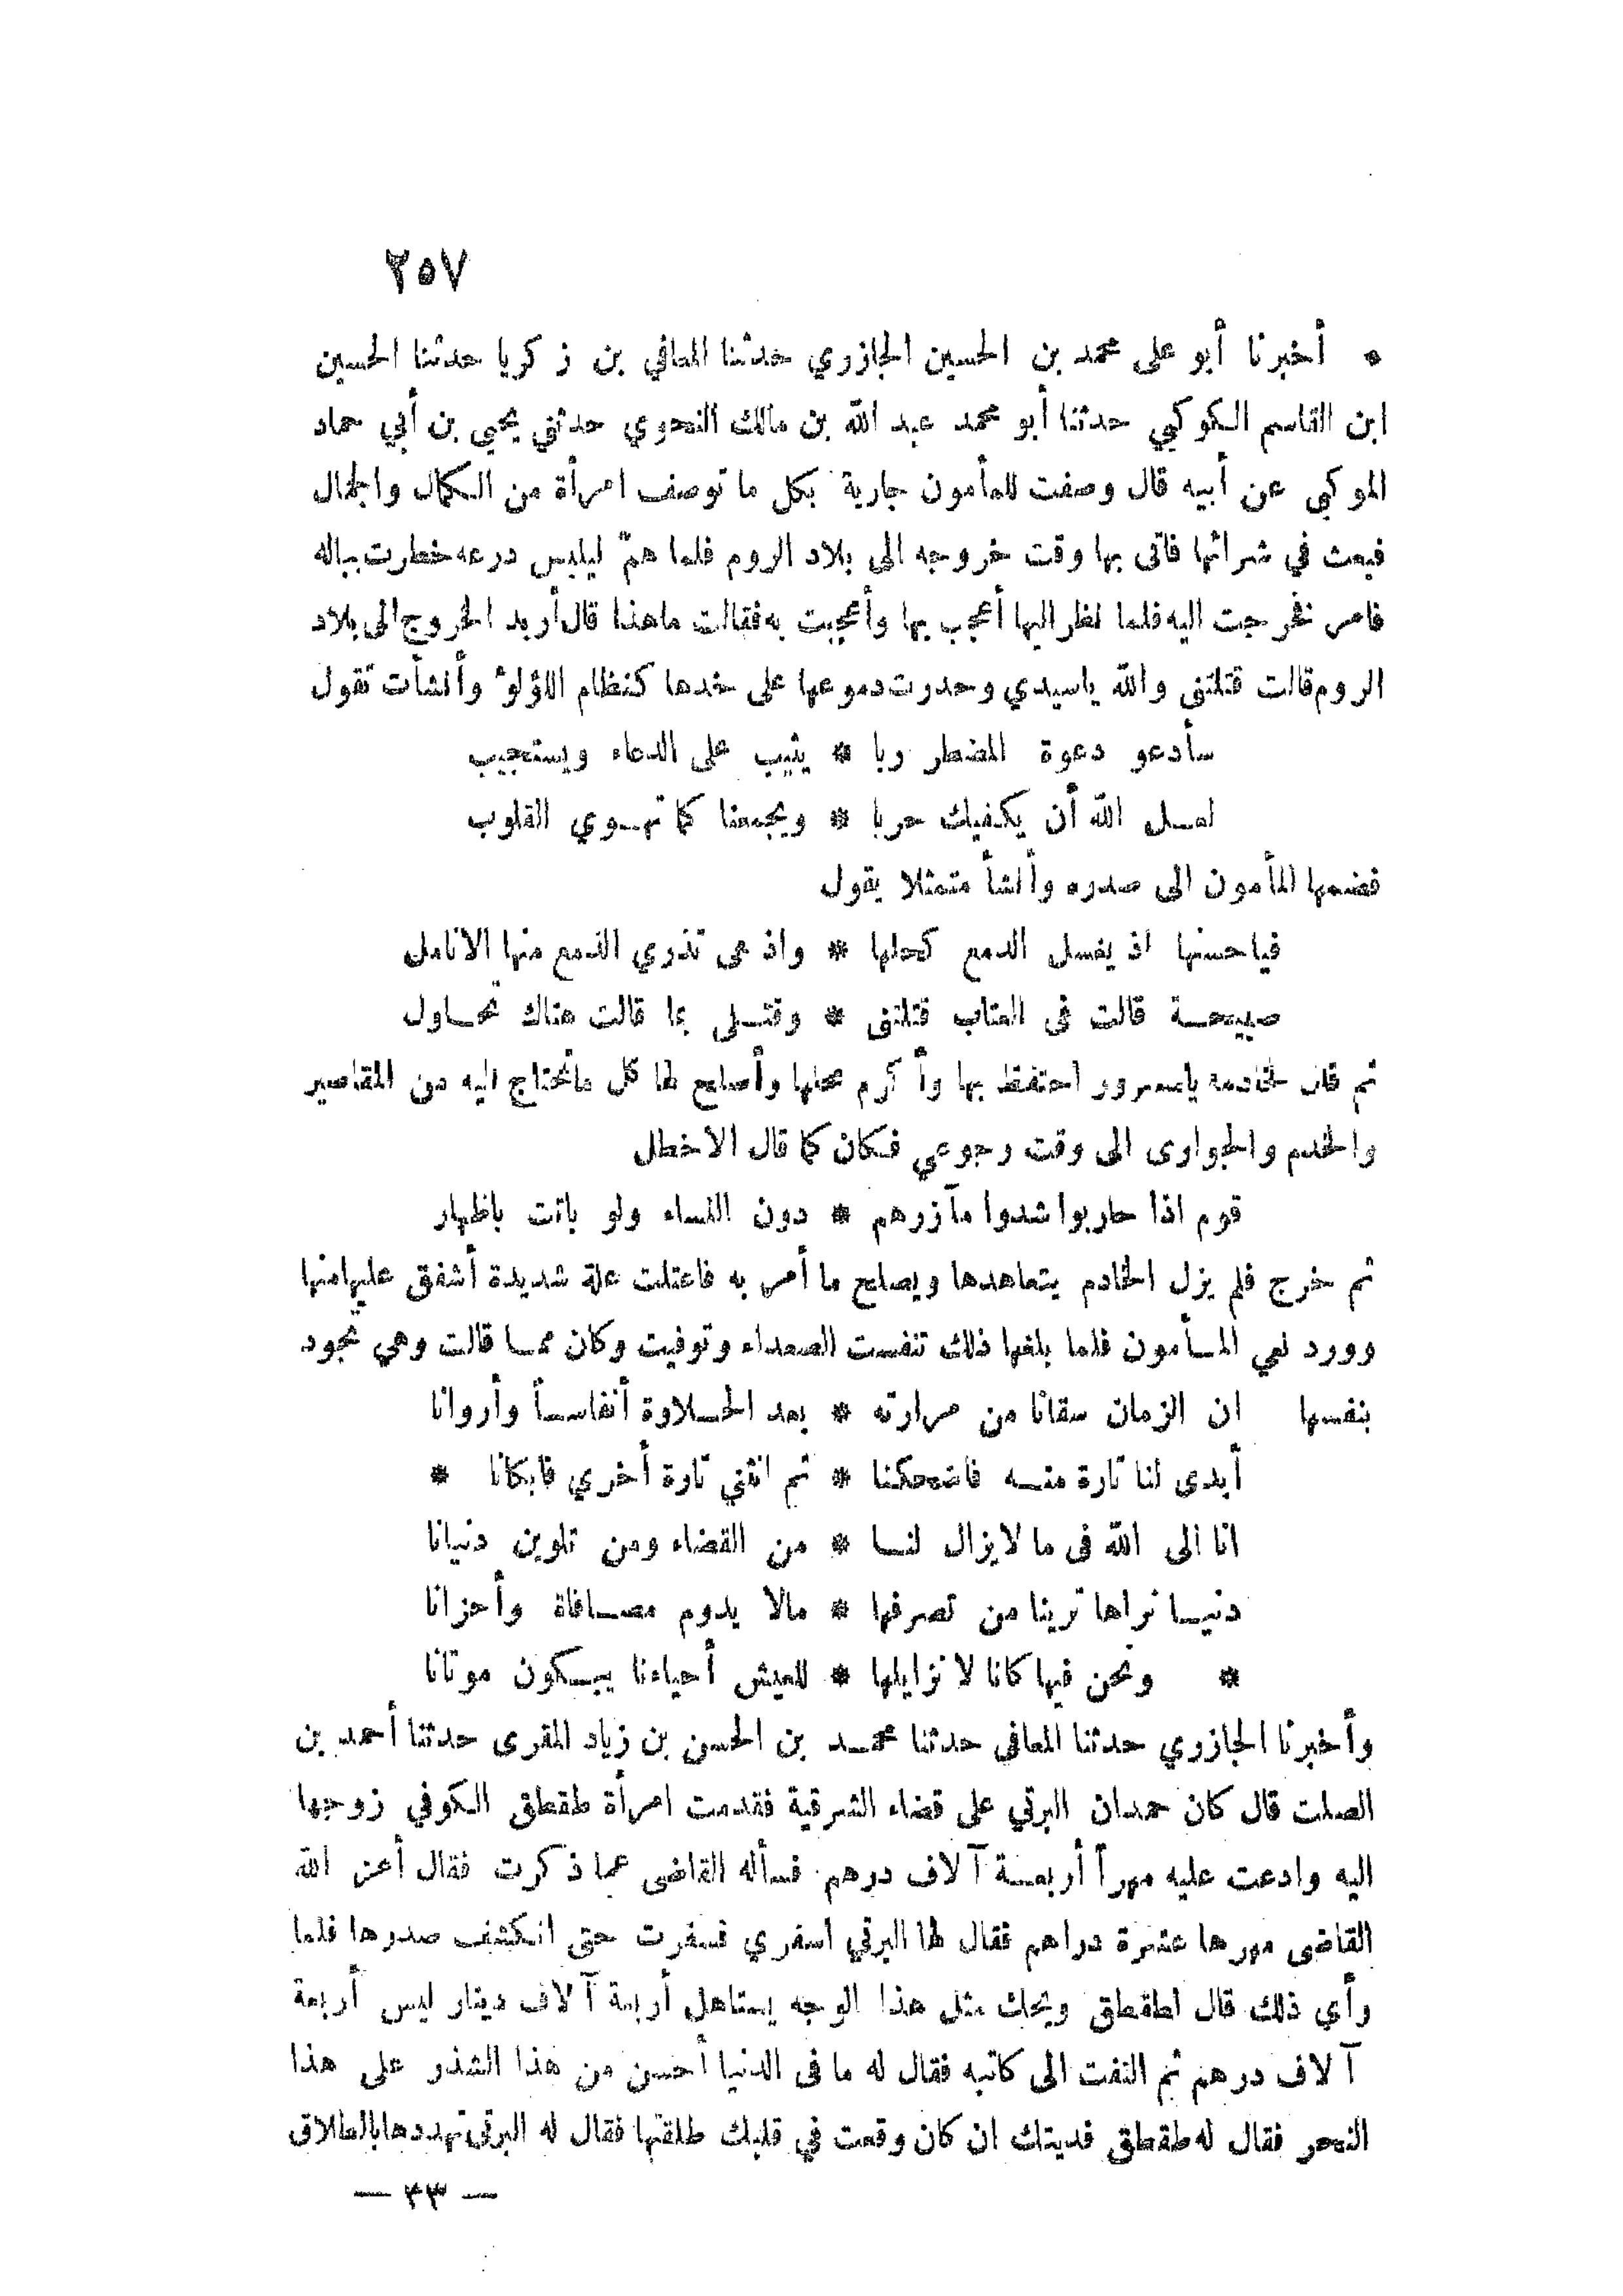 ٢٥٧
* أخبرنا أبو على محمد بن الحسين الجازري حدثنا المعافي بن زكريا حدثنا الحسين
ابن القاسم الكوكبي حدثنا أبو محمد عبد الله بن مالك النحوي حدثني يحيي بن أبي حماد
الموكبي عن أبيه قال وصفت للمأمون جارية بكل ما توصف امرأة من الكمال والجمال
فبعث في شرائها فاتى بها وقت خروجه الى بلاد الروم فلما همّ ليلبس درعه خطرت بباله
فامر نخرجت اليه فلما نظر اليها أعجب بها وأعجبت به فقالت ماهذا قال أريد الخروج الى بلاد
الروم قالت قتلتنى والله ياسيدي وحدرت دموعها على خدها كنظام اللؤلؤ وأنشأت تقول
سأدعو دعوة المضطر ربا * يثيب على الدعاء ويستجيب
لعل الله أن يكفيك حربا * ويجمعنا كما تهوي القلوب
فضمها المأمون الى صدره وأنشأ متمثلا يقول
فياحسنها اذ يغسل الدمع كحلها * واذ هى تذري الدمع منها الانامل
صبيحة قالت فى العتاب قتلتنى * وقتلى بما قالت هناك تحاول
ثم قال لخادمه يامسرور احتفظ بها وأكرم محلها وأصلح لها كل ماتحتاج اليه من المقاصير
والخدم والجوارى الى وقت رجوعي فكان كما قال الاخطل
قوم اذا حاربوا شدوا مآزرهم * دون النساء ولو باتت باظهار
ثم خرج فلم يزل الخادم يتعاهدها ويصلح ما أمر به فاعتلت علة شديدة أشفق عليهامنها
وورد نعي المأمون فلما بلغها ذلك تنفست الصعداء وتوفيت وكان مما قالت وهي تجود
بنفسها ان الزمان سقانا من مرارته * بعد الحلاوة أنفاساً وأروانا
أبدى لنا تارة منه فاضحكنا * ثم انثني تارة أخري فابكانا *
انا الى الله فى ما لايزال لنا * من القضاء ومن تلوين دنيانا
دنيا نراها ترينا من تصرفها * مالا يدوم مصافاة وأحزانا
* ونحن فيها كانا لا نزايلها * للعيش أحياءنا يبكون موتانا
وأخبرنا الجازري حدثنا المعافى حدثنا محمد بن الحسن بن زياد المقرى حدثنا أحمد بن
الصلت قال كان حمدان البرتي على قضاء الشرقية فقدمت امرأة طقطق الكوفي زوجها
اليه وادعت عليه مهراً أربعة آلاف درهم فسأله القاضى عما ذكرت فقال أعز الله
القاضى مهرها عشرة دراهم فقال لها البرتي اسفري فسفرت حتى انكشف صدرها فلما
رأي ذلك قال لطقطق ويحك مثل هذا الوجه يستاهل أربعة آلاف دينار ليس أربعة
آلاف درهم ثم التفت الى كاتبه فقال له ما فى الدنيا أحسن من هذا الشذر على هذا
النحر فقال له طقطق فديتك ان كان وقعت في قلبك طلقتها فقال له البرتى تهددها بالطلاق
— ٣٣ —